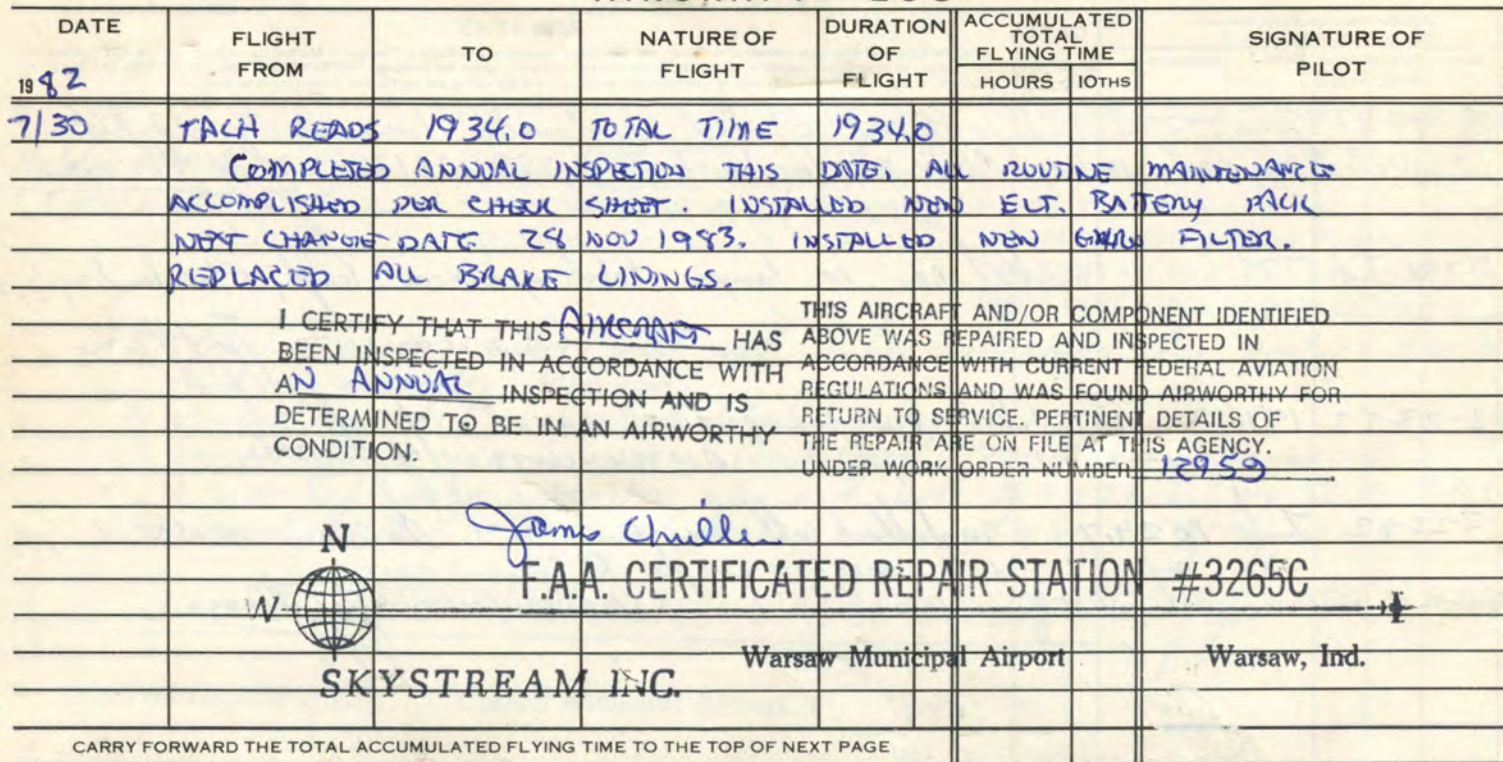 DATE FLIGHT FROM TO NATURE OF FLIGHT DURATION OF FLIGHT ACCUMULATED TOTAL FLYING TIME HOURS 10THS SIGNATURE OF PILOT
1982
7/30 TACH READS 1934.0 TOTAL TIME 1934.0
COMPLETED ANNUAL INSPECTION THIS DATE. ALL ROUTINE MAINTENANCE
ACCOMPLISHED PER CHECK SHEET. INSTALLED NEW ELT. BATTERY PACK
NEXT CHANGE DATE 28 NOV 1983. INSTALLED NEW FILTER.
REPLACED ALL BRAKE LININGS.
I CERTIFY THAT THIS AIRCRAFT HAS
BEEN INSPECTED IN ACCORDANCE WITH
AN ANNUAL INSPECTION AND IS
DETERMINED TO BE IN AN AIRWORTHY
CONDITION.
THIS AIRCRAFT AND/OR COMPONENT IDENTIFIED
ABOVE WAS REPAIRED AND INSPECTED IN
ACCORDANCE WITH CURRENT FEDERAL AVIATION
REGULATIONS AND WAS FOUND AIRWORTHY FOR
RETURN TO SERVICE. PERTINENT DETAILS OF
THE REPAIR ARE ON FILE AT THIS AGENCY.
UNDER WORK ORDER NUMBER 12959
James
N
W
F.A.A. CERTIFICATED REPAIR STATION #3265C
Warsaw Municipal Airport Warsaw, Ind.
SKYSTREAM INC.
CARRY FORWARD THE TOTAL ACCUMULATED FLYING TIME TO THE TOP OF NEXT PAGE